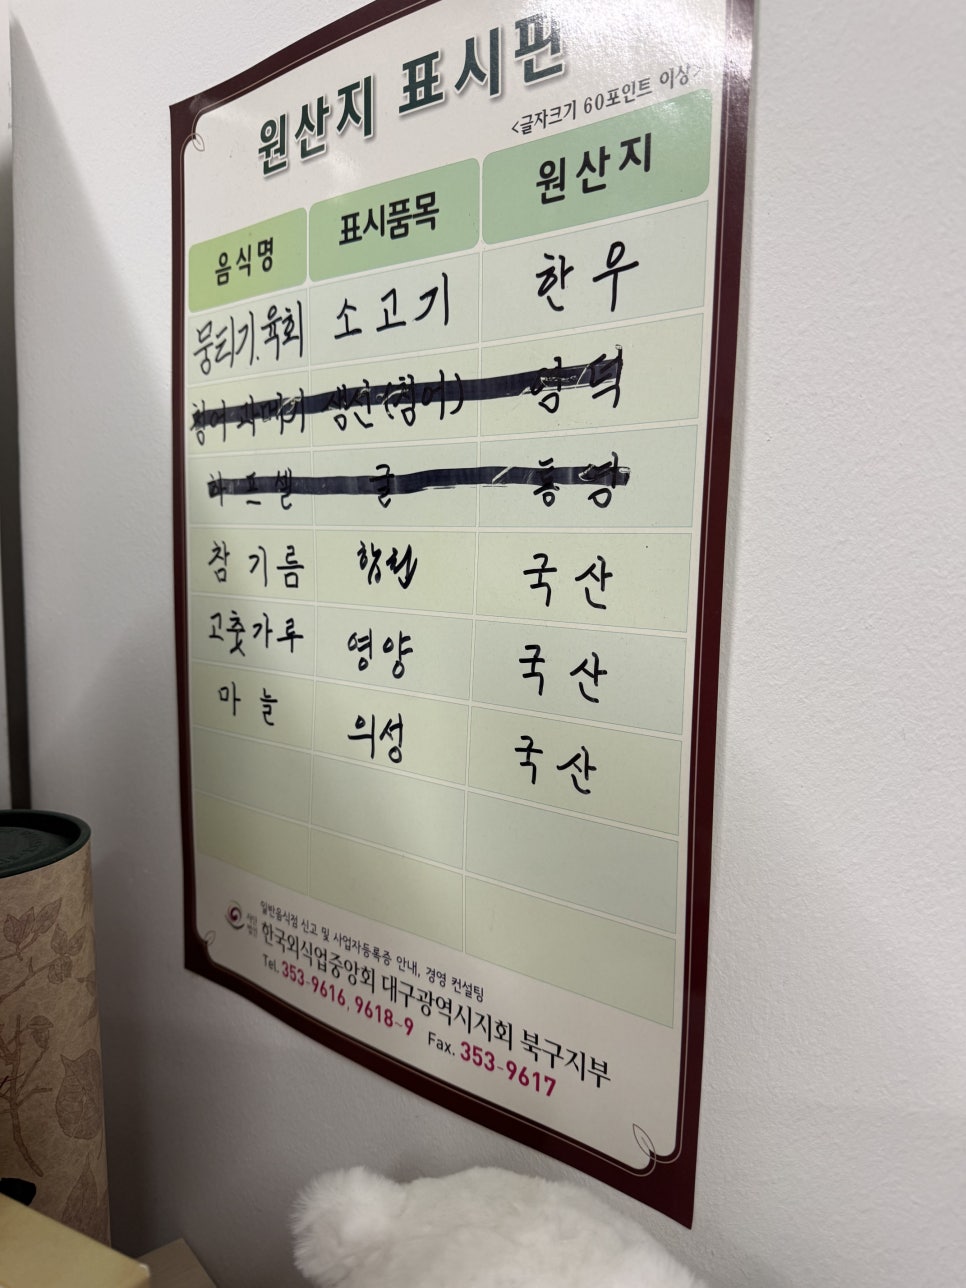 원산지 표시판
<글자크기 60포인트 이상>
음식명 표시품목 원산지
뭉티기.육회 소고기 한우
청어 과메기 생선(청어) 영덕
하프셀 굴 통영
참기름 국산
고춧가루 영양 국산
마늘 의성 국산
일반음식점 신고 및 사업자등록증 안내, 경영 컨설팅
사단법인 한국외식업중앙회 대구광역시지회 북구지부
Tel. 353-9616, 9618~9 Fax. 353-9617